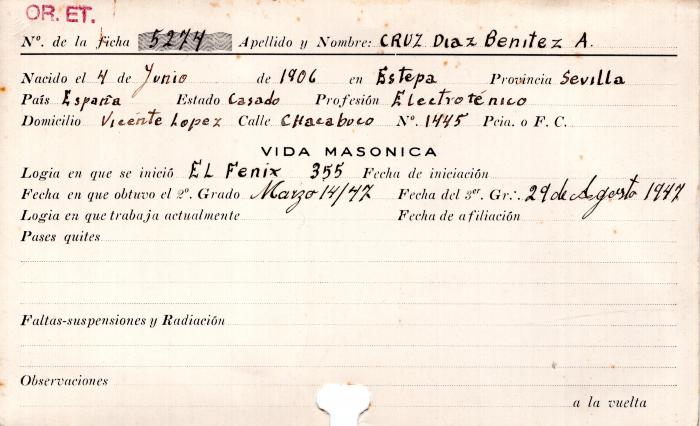 OR. ET.
Nº. de la ficha 5274 Apellido y Nombre: CRUZ Diaz Benitez A.
Nacido el 4 de Junio de 1906 en Estepa Provincia Sevilla
País España Estado Casado Profesión Electroténico
Domicilio Vicente Lopez Calle Chacabuco Nº. 1445 Pcia. o F. C.
VIDA MASONICA
Logia en que se inició EL Fenix 355 Fecha de iniciación
Fecha en que obtuvo el 2º. Grado Marzo 14/47 Fecha del 3er. Gr.·. 29 de Agosto 1947
Logia en que trabaja actualmente Fecha de afiliación
Pases quites
Faltas-suspensiones y Radiación
Observaciones
a la vuelta